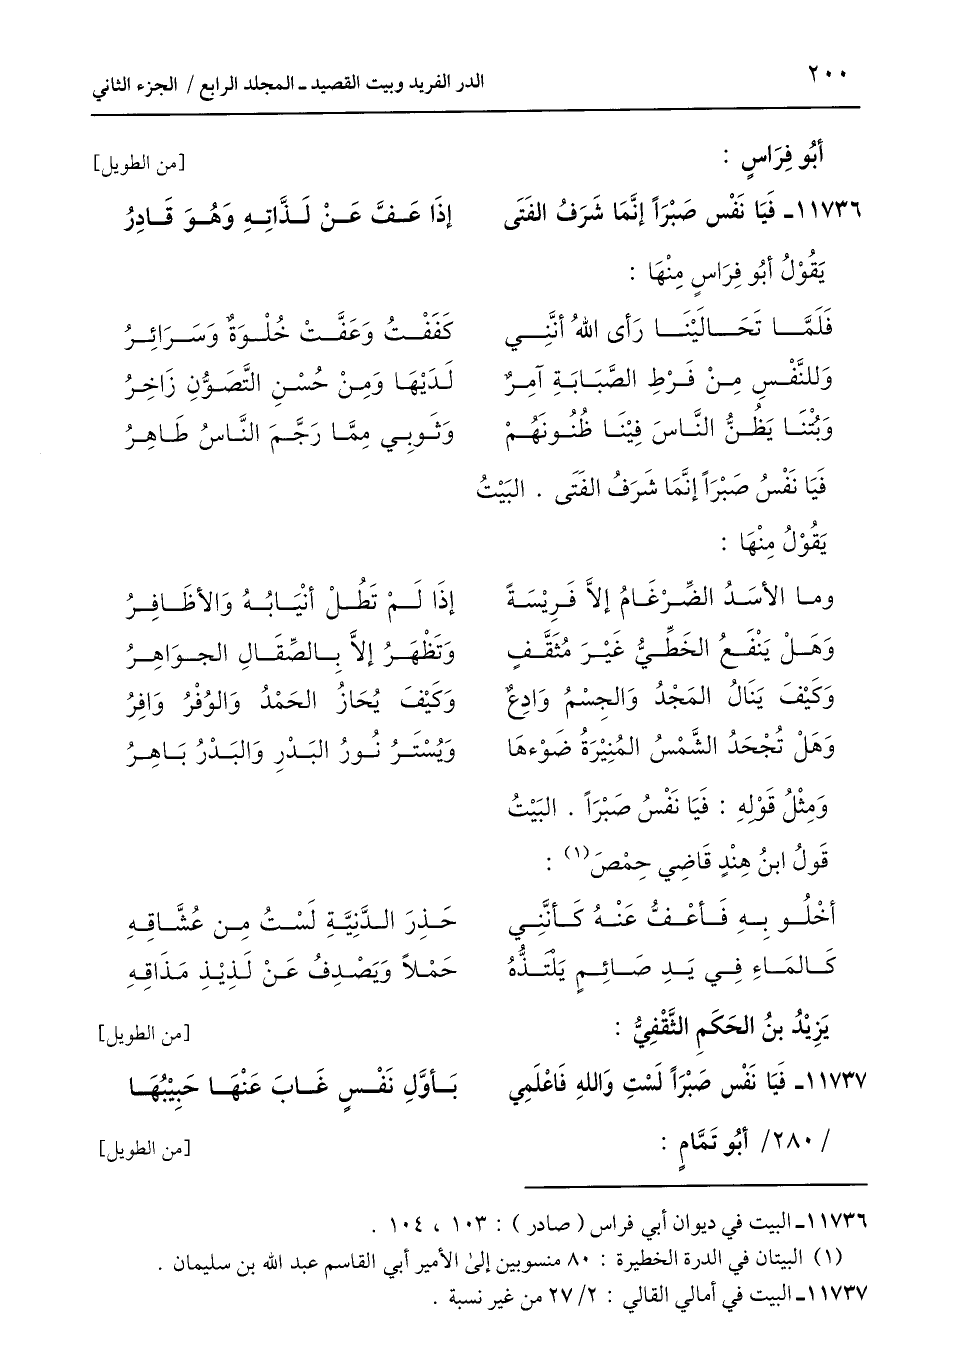 ٢٠٠ الدر الفريد وبيت القصيد ـ المجلد الرابع / الجزء الثاني
أَبُو فِرَاسٍ : [من الطويل]
١١٧٣٦ـ فَيَا نَفْسِ صَبْرَاً إِنَّمَا شَرَفُ الفَتَى إِذَا عَفَّ عَنْ لَذَّاتِهِ وَهُوَ قَادِرُ
يَقُوْلُ أَبُو فِرَاسٍ مِنْهَا :
فَلَمَّا تَخَالَيْنَا رَأى اللهُ أَنَّنِي كَفَفْتُ وَعَفَّتْ خُلْوَةٌ وَسَرَائِرُ
وَلِلنَّفْسِ مِنْ فَرْطِ الصَّبَابَةِ آمِرٌ لَدَيْهَا وَمِنْ حُسْنِ التَّصَوُّنِ زَاجِرُ
وَبُتْنَا يَظُنُّ النَّاسَ فِيْنَا ظُنُونَهُمْ وَثَوبِي مِمَّا رَجَّمَ النَّاسُ طَاهِرُ
فَيَا نَفْسُ صَبْرَاً إِنَّمَا شَرَفُ الفَتَى . البَيْتُ
يَقُوْلُ مِنْهَا :
وما الأَسَدُ الضِّرْغَامُ إِلاَّ فَرِيْسَةً إِذَا لَمْ تَطُلْ أَنْيَابُهُ وَالأَظَافِرُ
وَهَلْ يَنْفَعُ الخَطِّيُّ غَيْرَ مُثَقَّفٍ وَتَظْهَرُ إِلاَّ بِالصِّقَالِ الجواهِرُ
وَكَيْفَ يَنَالُ المَجْدُ وَالجِسْمُ وَادِعٌ وَكَيْفَ يُحَازُ الحَمْدُ وَالوُفْرُ وَافِرُ
وَهَلْ تُجْحَدُ الشَّمْسُ المُنِيْرَةُ ضَوْءهَا وَيُسْتَرُ نُورُ البَدْرِ وَالبَدْرُ بَاهِرُ
وَمِثْلُ قَوْلِهِ : فَيَا نَفْسُ صَبْرَاً . البَيْتُ
قَولُ ابنُ هِنْدٍ قَاضِي حِمْصَ(١) :
أَخْلُو بِهِ فَأَعْفُّ عَنْهُ كَأَنَّنِي حَذِرَ الدَّنِيَّةِ لَسْتُ مِن عُشَّاقِهِ
كَالمَاءِ فِي يَدِ صَائِمٍ يَلْتَذُّهُ حَمْلاً وَيَصْدِفُ عَنْ لَذِيْذِ مَذَاقِهِ
يَزِيْدُ بنُ الحَكَمِ الثَّقْفِيُّ : [من الطويل]
١١٧٣٧ـ فَيَا نَفْسِ صَبْرَاً لَسْتِ وَاللهِ فَاعْلَمِي بَأَوَّلِ نَفْسٍ غَابَ عَنْهَا حَبِيْبُهَا
/ ٢٨٠/ أَبُو تَمَّامٍ : [من الطويل]
١١٧٣٦ـ البيت في ديوان أبي فراس ( صادر ) : ١٠٣ ، ١٠٤ .
(١) البيتان في الدرة الخطيرة : ٨٠ منسوبين إلىٰ الأمير أبي القاسم عبد الله بن سليمان .
١١٧٣٧ـ البيت في أمالي القالي : ٢/ ٢٧ من غير نسبة .